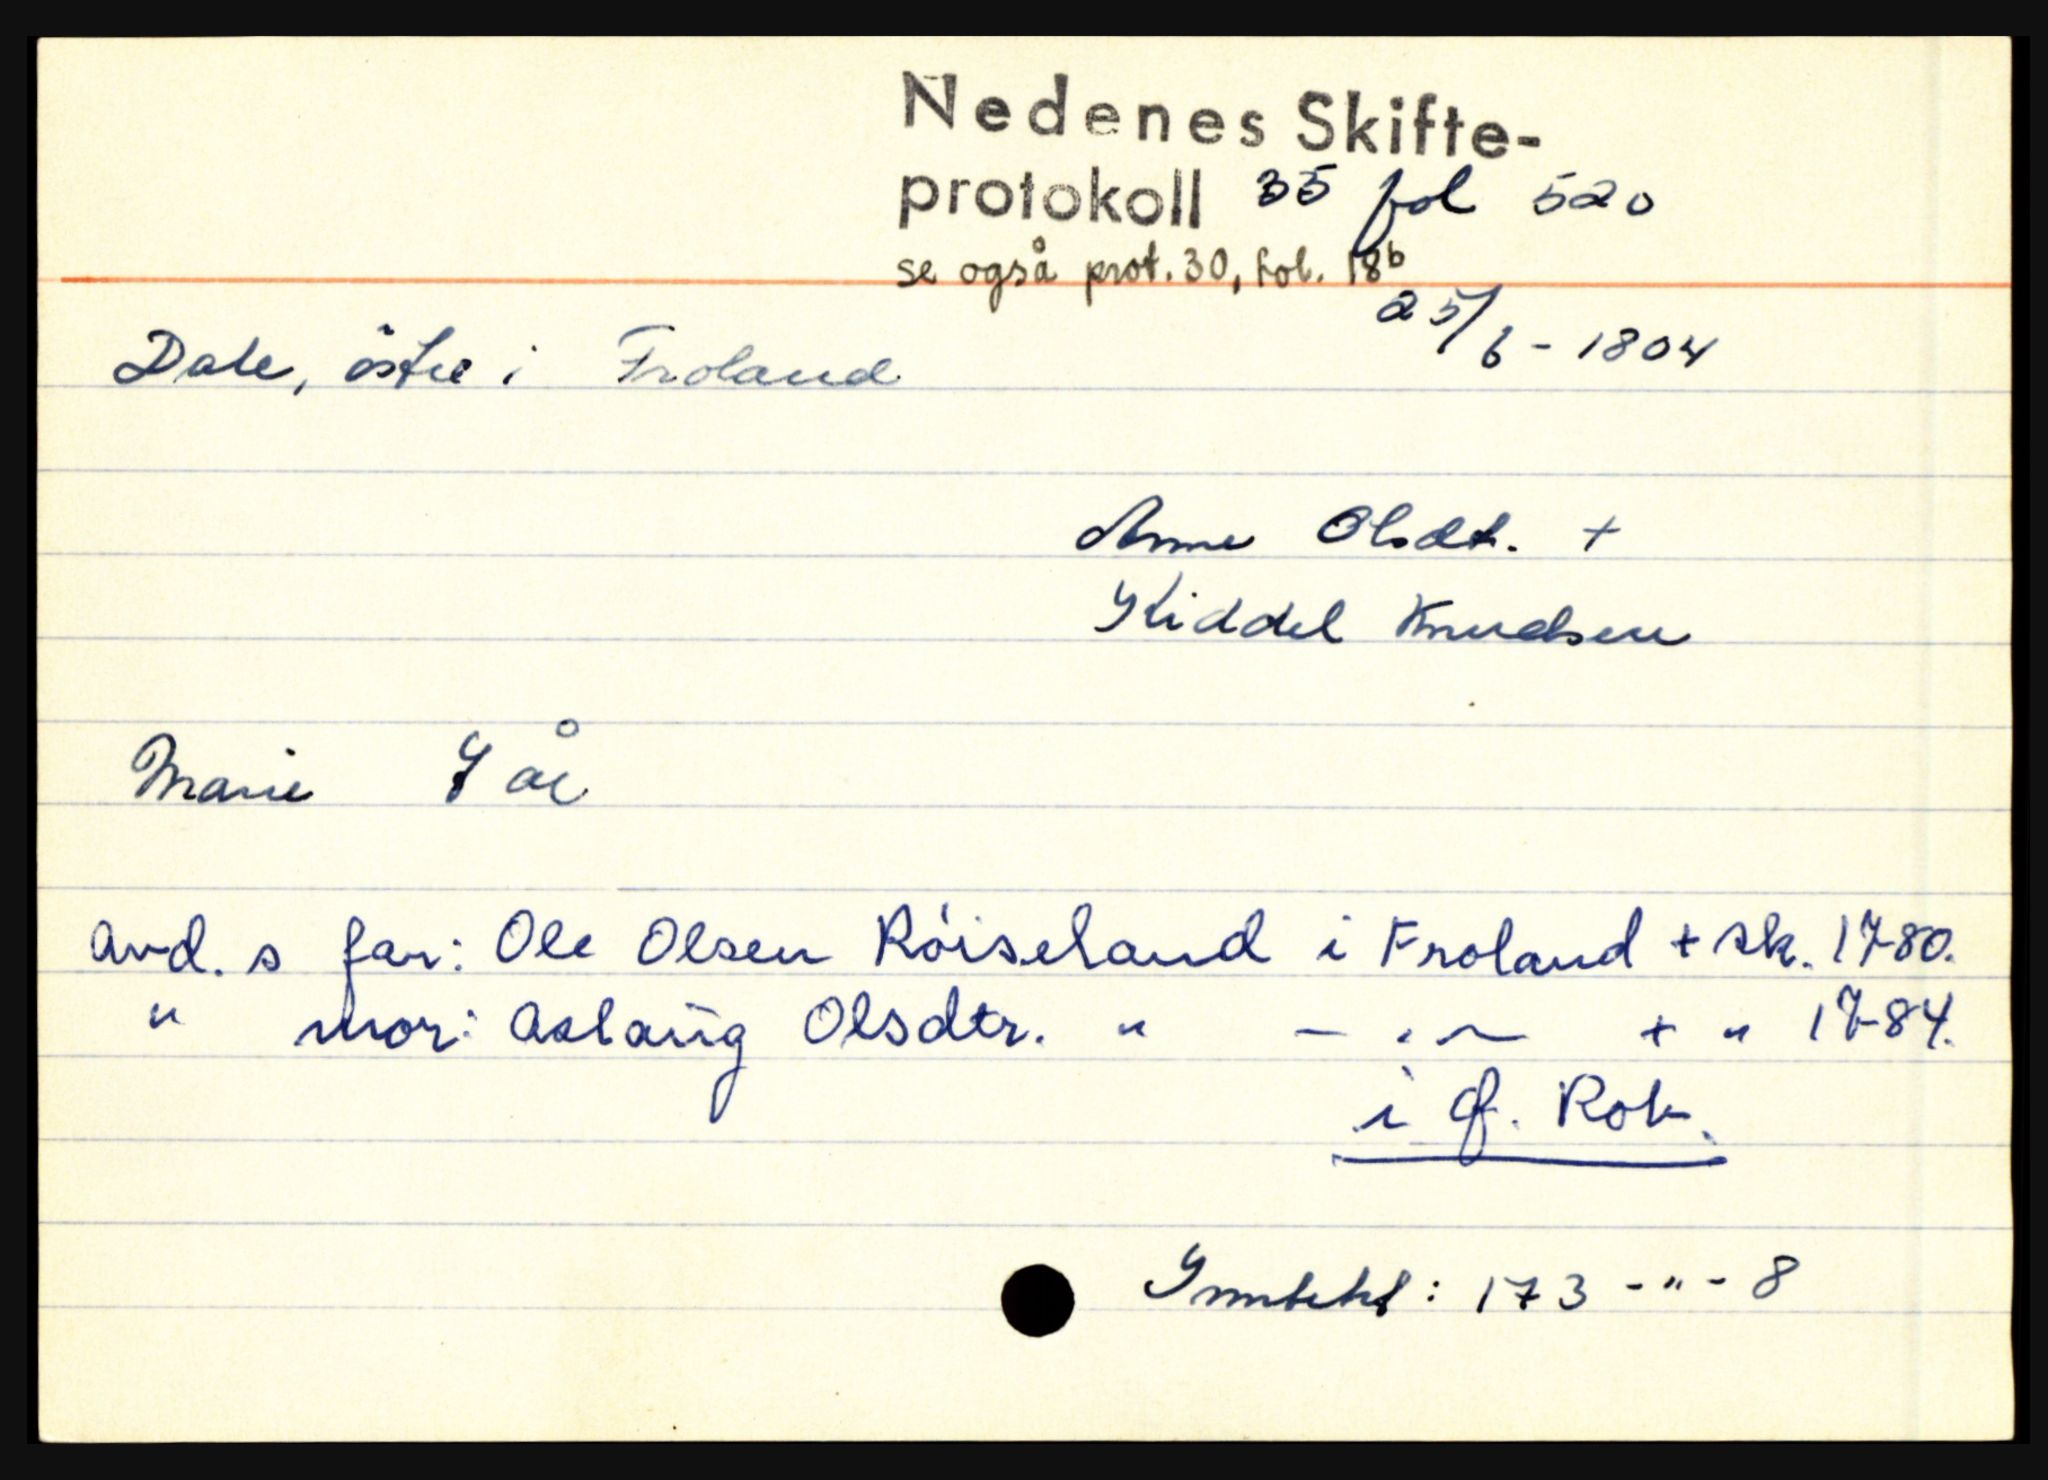 Nedenes Skifte-
protokoll 35 fol 520
se også prot. 30, fol. 18b
25/6 - 1804
Dale, östre i Froland
Anne Olsdt. +
Kiddel Knudsen
Marie 9 år
avd. s far: Ole Olsen Röiseland i Froland + sk. 1780.
" mor: Aslaug Olsdtr. " - " - + " 1784.
i Rok.
Inntekt: 173 - " - 8